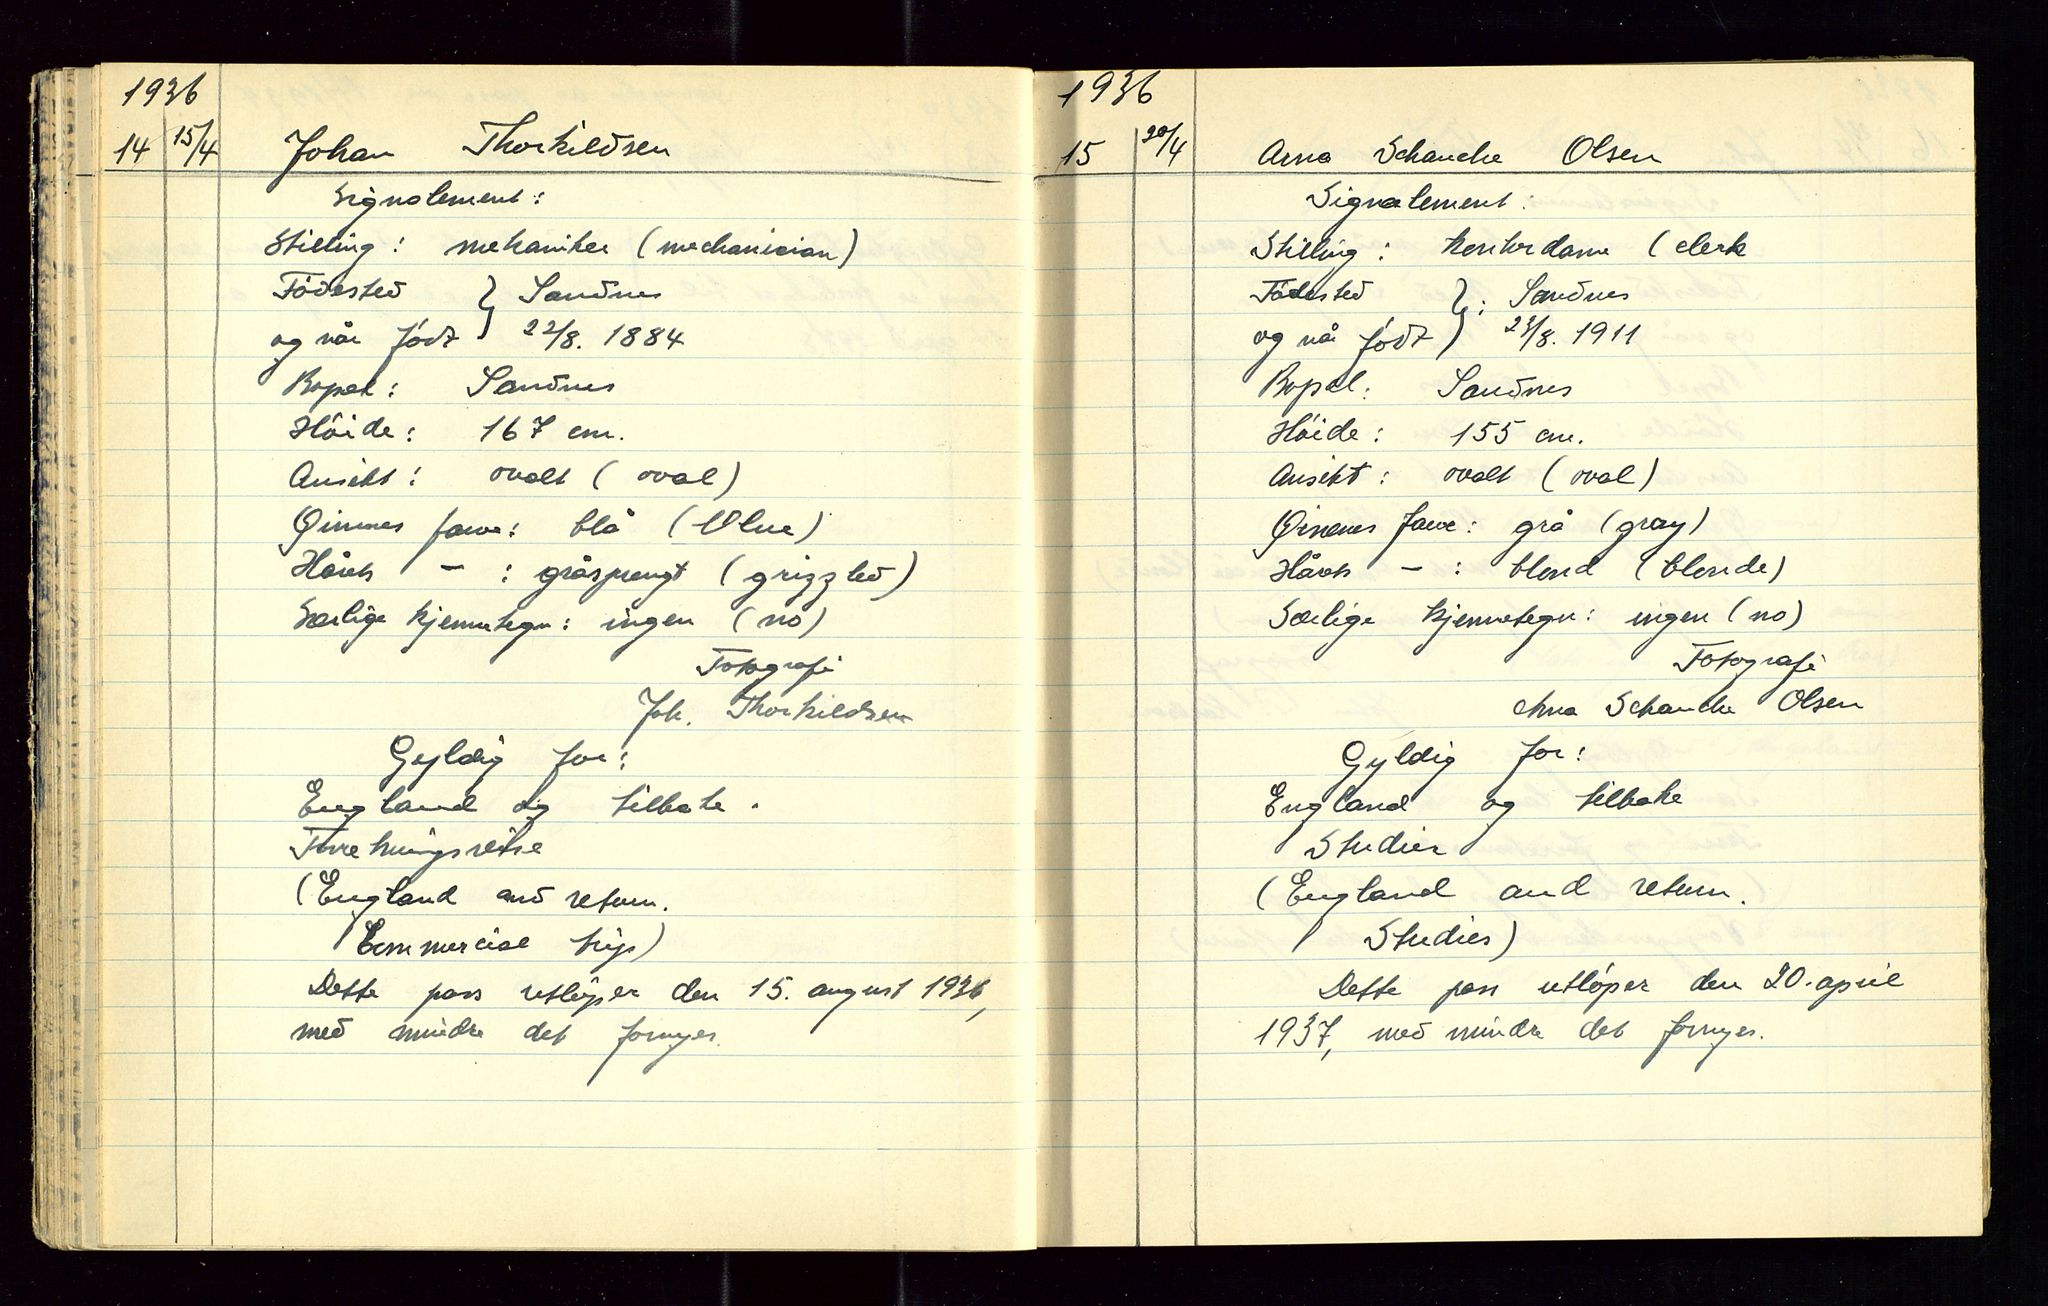 1936
14 15/4 Johan Thorkildsen
Signalement:
Stilling: mekaniker (mechanician)
Fødested } Sandnes
og når født } 22/8. 1884
Bopel: Sandnes
Høide: 167 cm.
Ansikt: ovalt (oval)
Øinenes farve: blå (blue)
Hårets — : gråsprengt (grizzled)
Særlige kjennetegn: ingen (no)
Fotografi
Joh. Thorkildsen
Gyldig for:
England og tilbake.
Forretningsreise
(England and return.
Commercial trip)
Dette pass utløper den 15. august 1936,
med mindre det fornyes.
1936
15 20/4 Arna Schancke Olsen
Signalement:
Stilling: kontordame (clerk
Fødested } : Sandnes
og når født } 23/8. 1911
Bopel: Sandnes
Høide: 155 cm.
Ansikt: ovalt (oval)
Øinenes farve: grå (gray)
Hårets — : blond (blonde)
Særlige kjennetegn: ingen (no)
Fotografi
Arna Schancke Olsen
Gyldig for:
England og tilbake
Studier
(England and return.
Studies)
Dette pass utløper den 20. april
1937, med mindre det fornyes.